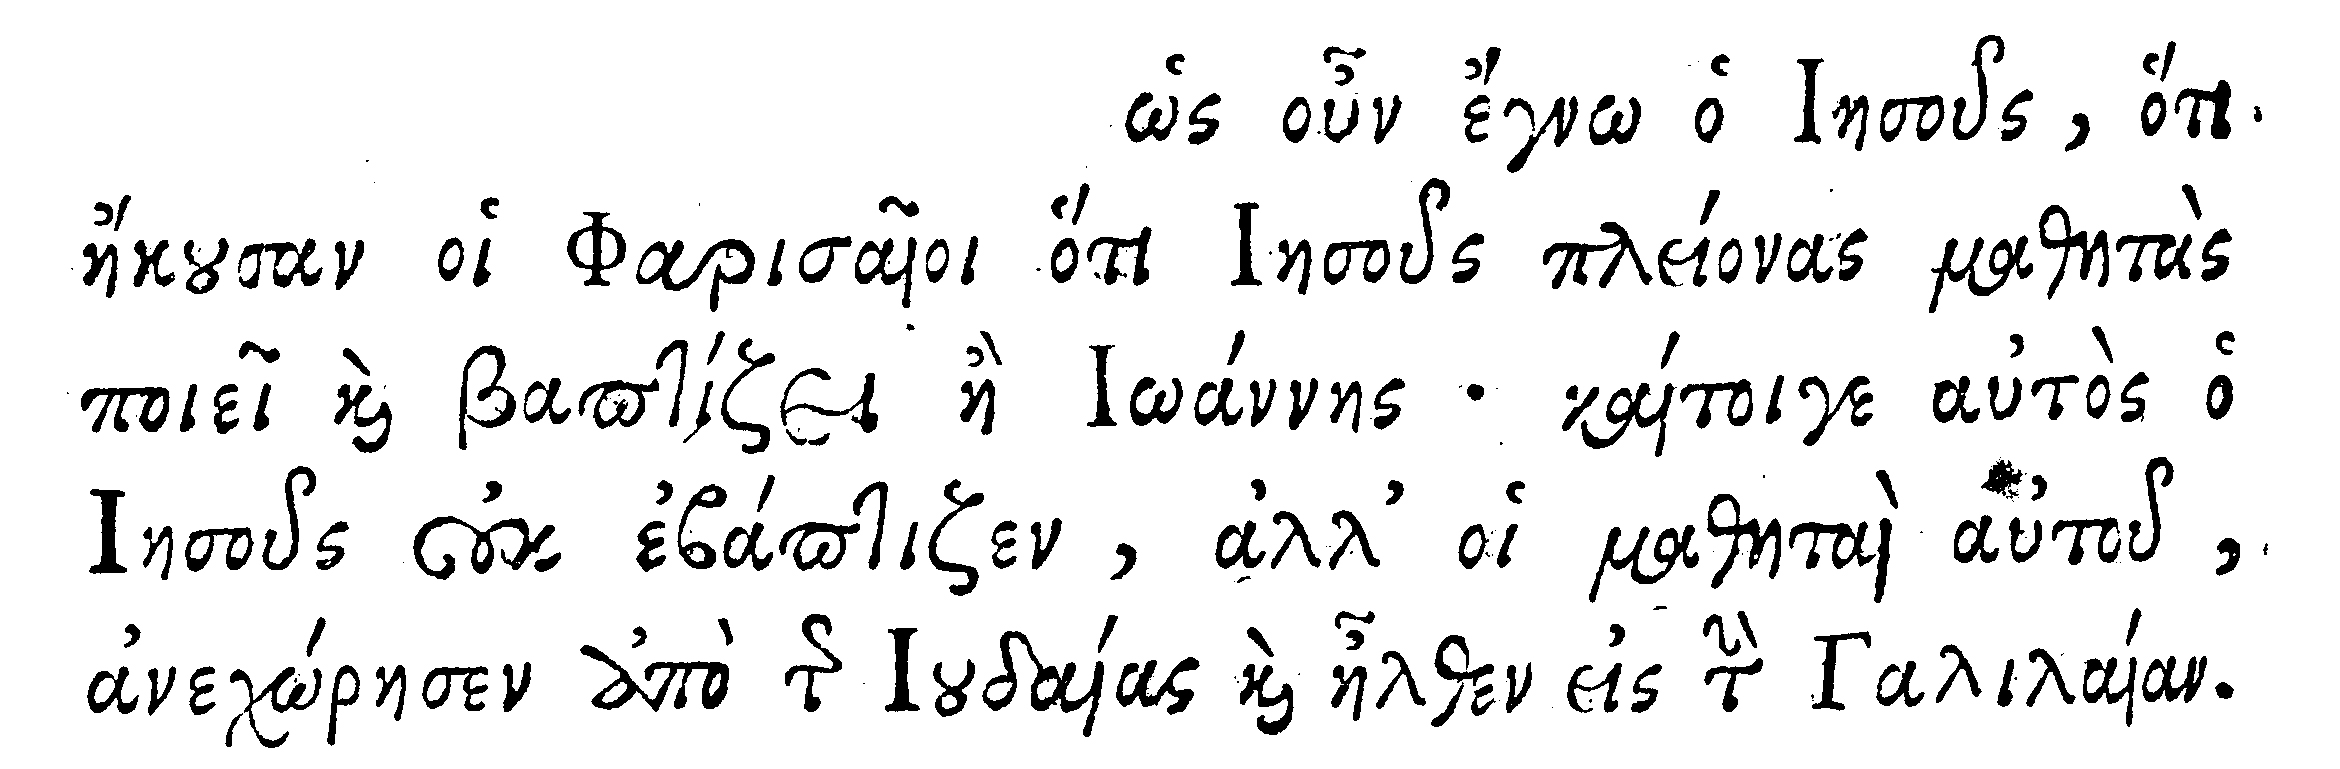 ὡς οὖν ἔγνω ὁ Ιησοῦς, ὅτι
ἤκȣσαν οἱ Φαρισαῖοι ὅτι Ιησοῦς πλείονας μαθητὰς
ποιεῖ ϗ βαπτίζει ἢ Ιωάννης · καίτοιγε αὐτὸς ὁ
Ιησοῦς οὐκ ἐβάπτιζεν, ἀλλ’ οἱ μαθηταὶ αὐτοῦ,
ἀνεχώρησεν ἀπὸ τῆς Ιȣδαίας ϗ ἦλθεν εἰς τὴν Γαλιλαίαν.